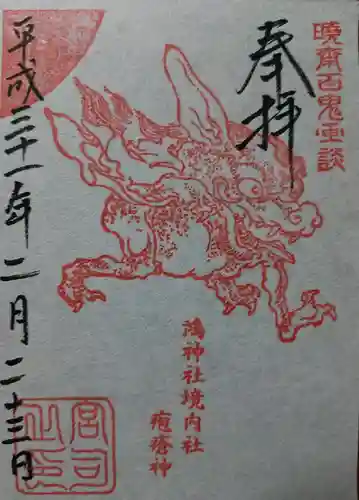 暁斎百鬼画談
奉拝
平成三十一年二月二十三日
鴻神社境内社
疱瘡神
宮司之印